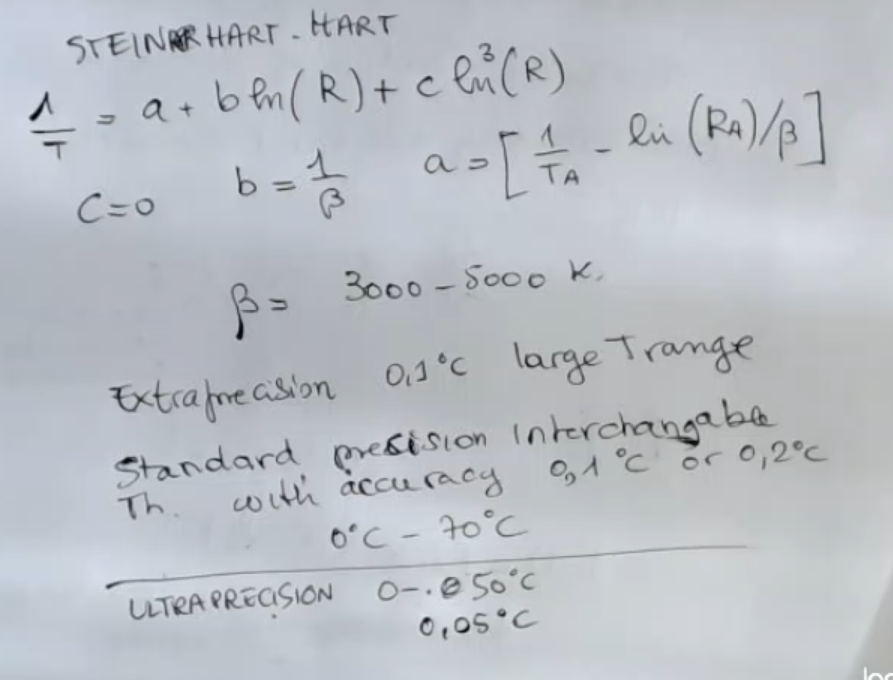 STEINHART - HART
1/T = a + b ln(R) + c ln³(R)
C=0 b = 1/β a = [1/TA - ln (RA)/β]
β = 3000 - 5000 K.
Extraprecision 0,1°C large T range
Standard precision Interchangable
Th. with accuracy 0,1°C or 0,2°C
0°C - 70°C
ULTRAPRECISION 0-. 50°C
0,05°C